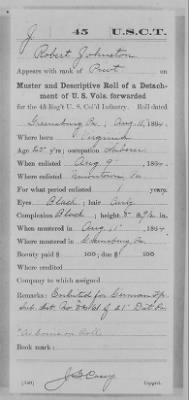 J 45 U.S.C.T.
Robert Johnston
Appears with rank of Privt. on
Muster and Descriptive Roll of a Detach-
ment of U. S. Vols. forwarded
for the 45 Reg't U. S. Col'd Infantry. Roll dated
Greensburg Pa, Aug 12, 1864.
Where born Virginia
Age y'rs; occupation Laborer
When enlisted Aug 9, 1864.
Where enlisted Uniontown, Pa.
For what period enlisted 1 years.
Eyes Black; hair Curly
Complexion Black; height ft. in.
When mustered in Aug 11, 1864.
Where mustered in Greensburg, Pa.
Bounty paid $ 100; due $ 100
Where credited
Company to which assigned
Remarks: Enlisted for German Tp.
Sub. Dist. of 21" Dist. Pa
Book mark:
J S Casey
Copyist.